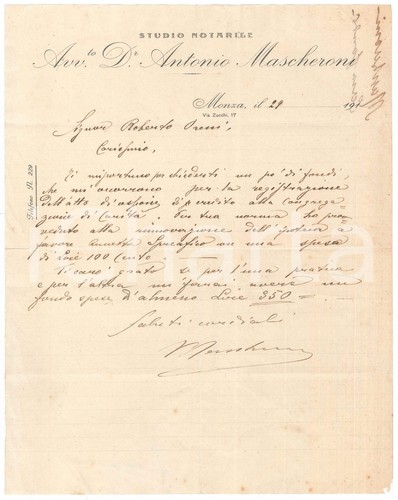 STUDIO NOTARILE
Avv.to D.r Antonio Mascheroni
Monza, il 29 191
Via Zucchi, 17
Telefono N. 220
Signor Roberto
Carissimo,
Ti importuno per chiederti un po' di fondi,
che mi occorrono per la registrazione
dell'atto di cessione di credito alla Congrega-
zione di Carità. Per tua norma ho prov
veduto alla rinnovazione dell'ipoteca a
favore con una spesa
di Lire 100 Cento.
Ti sarò grato se per l'una pratica
e per l'altra mi farai avere un
fondo spese d'almeno Lire 350=.
Saluti cordiali
Mascheroni